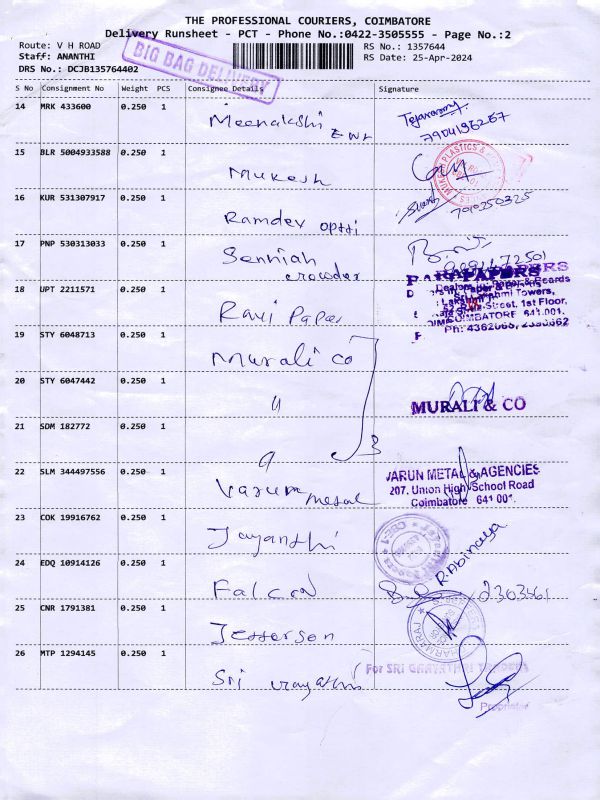 THE PROFESSIONAL COURIERS, COIMBATORE
Delivery Runsheet - PCT - Phone No.:0422-3505555 - Page No.:2
Route: V H ROAD
RS No.: 1357644
Staff: ANANTHI
RS Date: 25-Apr-2024
DRS No.: DCJB135764402
BIG BAG DELIVERY
S No Consignment No Weight PCS Consignee Details Signature
14 MRK 433600 0.250 1 Meenakshi
15 BLR 5004933588 0.250 1 Mukesh
MUKESH PLASTICS &
16 KUR 531307917 0.250 1 Ramdev opthi
7010250325
17 PNP 530313033 0.250 1 Senniah crowder
18 UPT 2211571 0.250 1 Ravi Paper
RAVI PAPERS
Dealers in: Paper & Boards
1st Floor,
COIMBATORE 641 001.
19 STY 6048713 0.250 1 Murali co
20 STY 6047442 0.250 1 "
MURALI & CO
21 SDM 182772 0.250 1 "
3
22 SLM 344497556 0.250 1 Varun metal
VARUN METAL & AGENCIES
207, Union High School Road
Coimbatore 641 001.
23 COK 19916762 0.250 1 Jayanthi
24 EDQ 10914126 0.250 1 Falcon
R.Abinaya
2303561
25 CNR 1791381 0.250 1 Jefferson
26 MTP 1294145 0.250 1 Sri vinayathri
For SRI GAYATHRI TRADERS
Proprietor